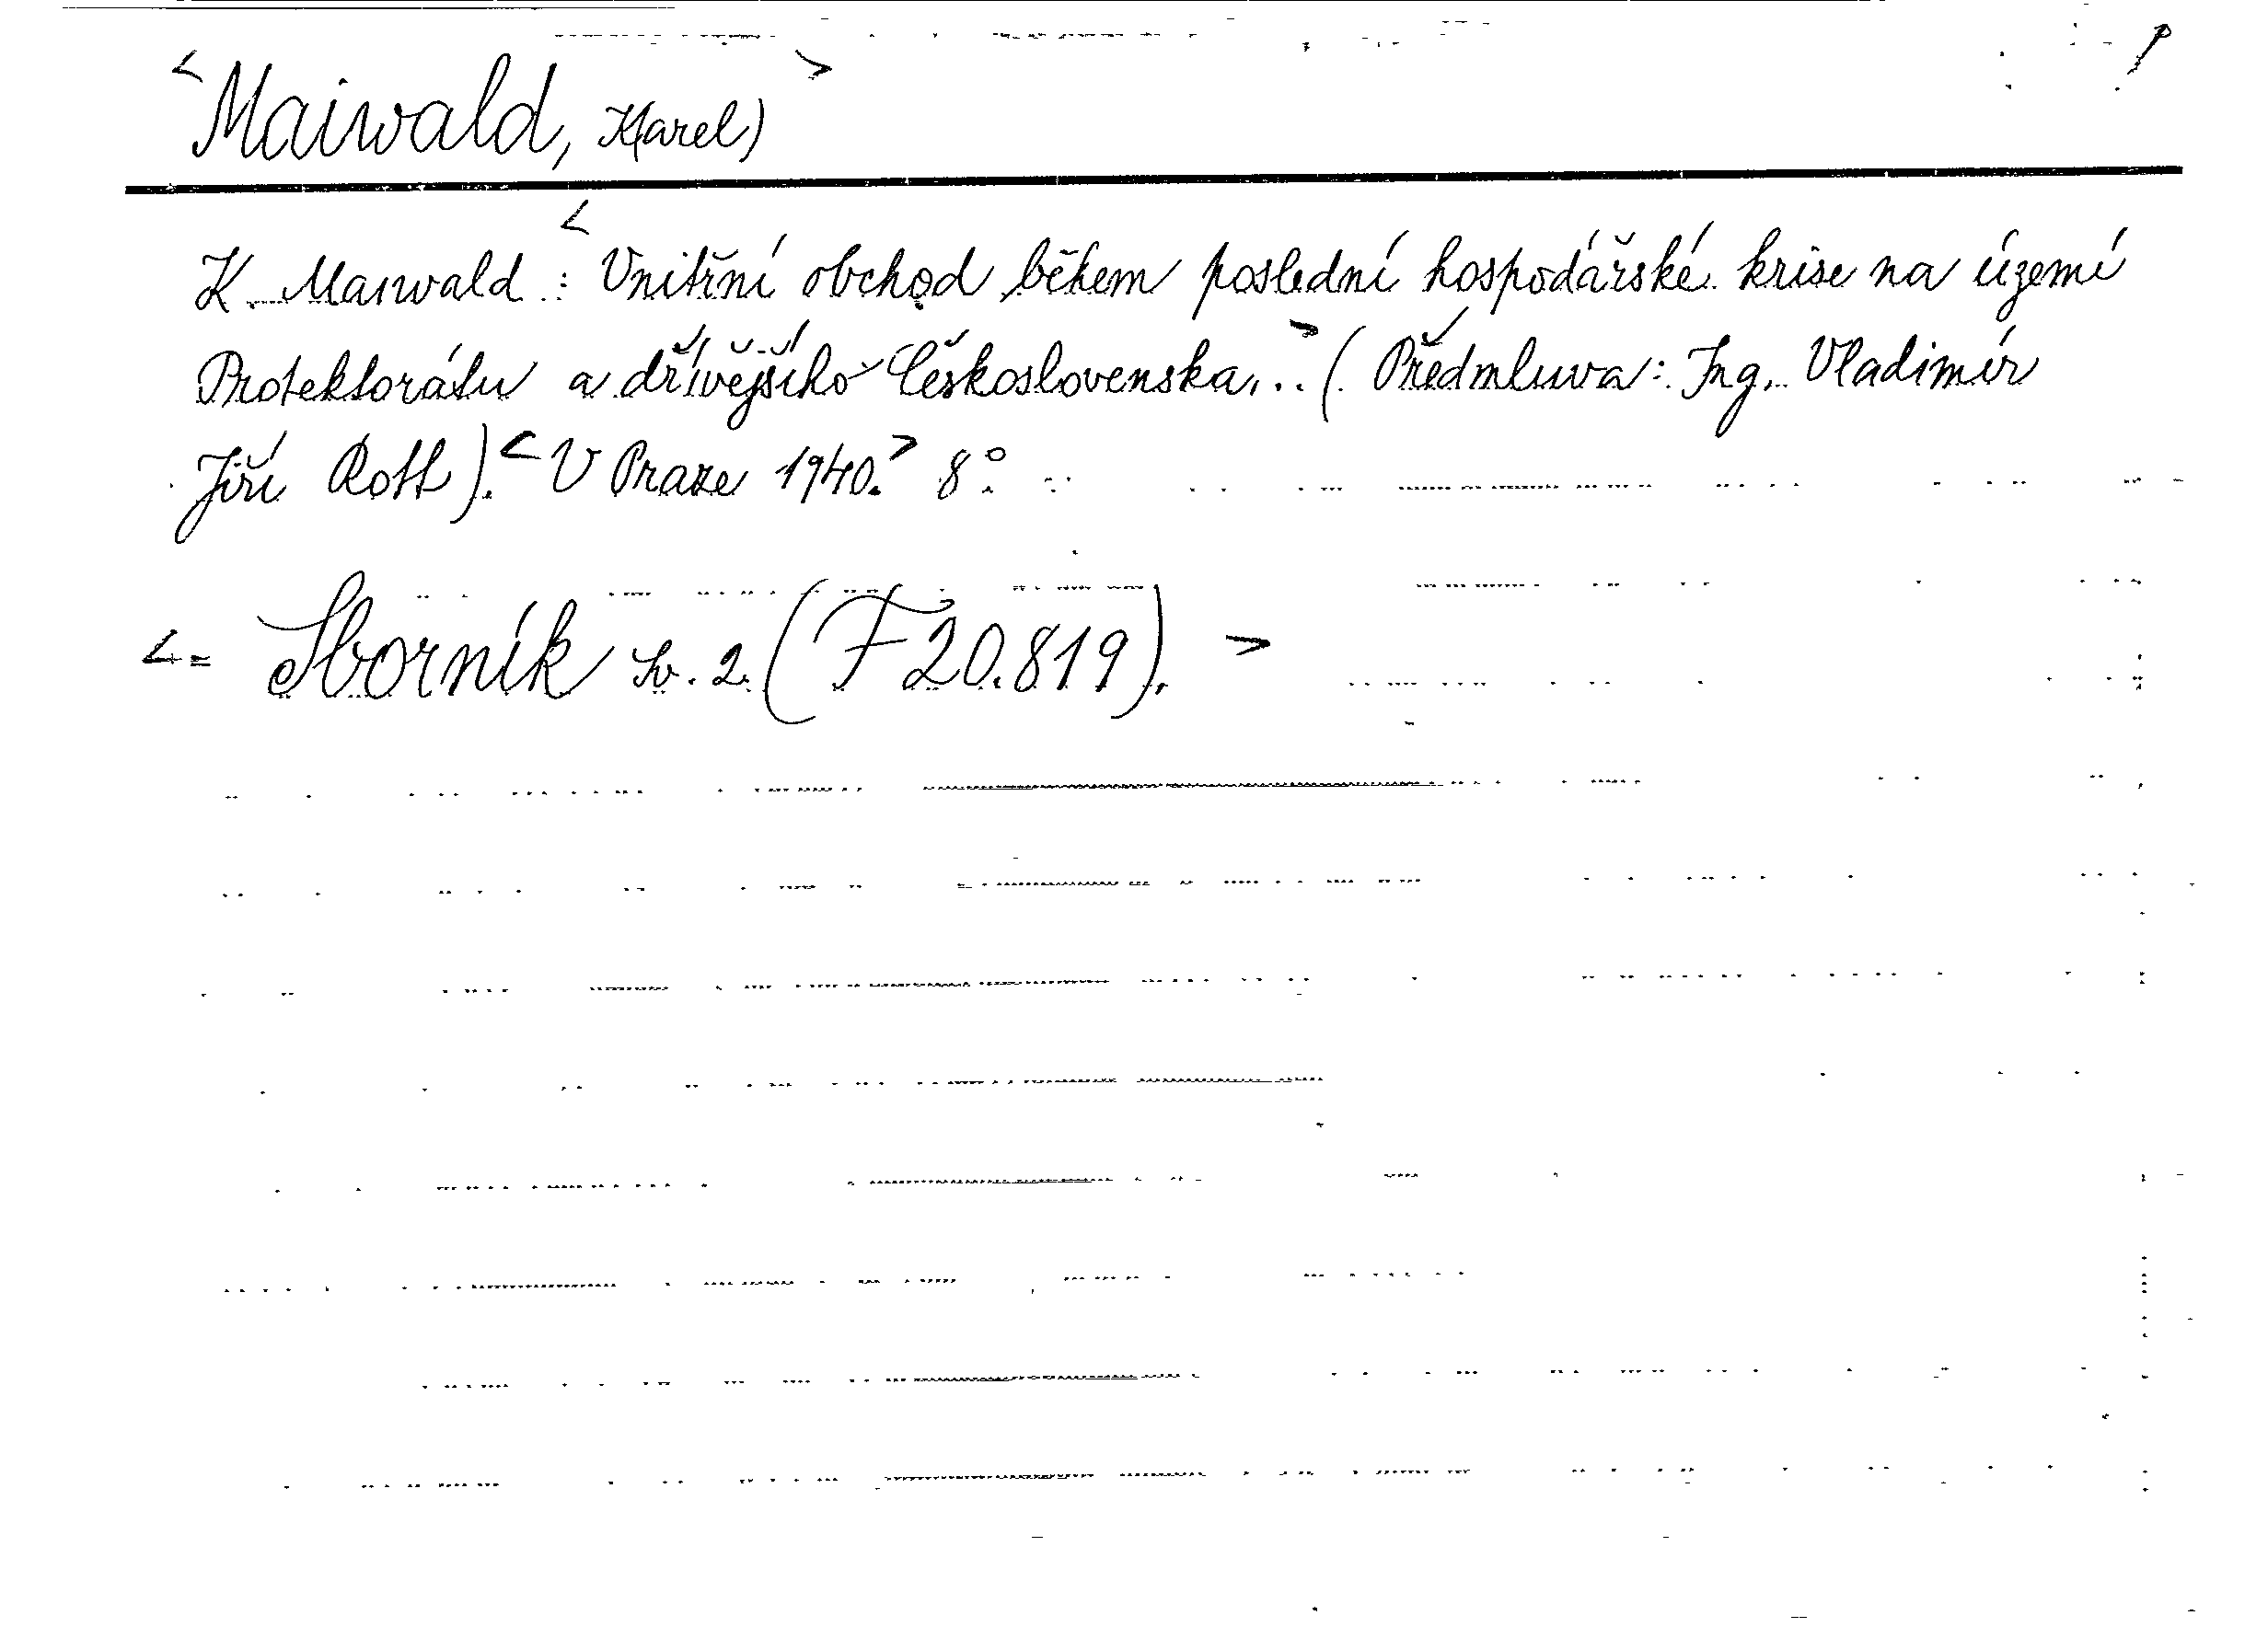 <Maiwald, K(arel)>
K. Maiwald: <Vnitřní obchod během poslední hospodářské krise na území
Protektorátu a dřívějšího Československa...> (Předmluva: Ing. Vladimír
Jiří Rott). <V Praze 1940.> 8°.
<= Sborník sv. 2 (F 20.819). >